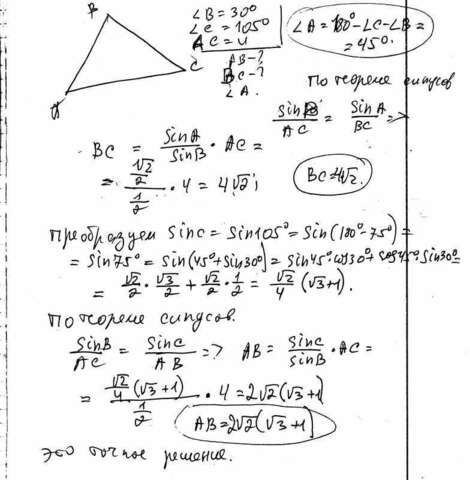 B
A
C
∠B = 30°
∠C = 105°
AC = 4
AB - ?
BC - ?
∠A.
∠A = 180° - ∠C - ∠B =
= 45°
По теореме синусов
SinB/AC = SinA/BC =>
BC = SinA/SinB · AC =
= (√2/2)/(1/2) · 4 = 4√2;
BC = 4√2.
Преобразуем Sinc = Sin105° = Sin(180° - 75°) =
= Sin75° = Sin(45° + Sin30°) = Sin45° cos30° + cos45° Sin30° =
= √2/2 · √3/2 + √2/2 · 1/2 = √2/4 (√3+1).
По теореме синусов.
SinB/AC = Sinc/AB => AB = Sinc/SinB · AC =
= (√2/4 (√3+1))/(1/2) · 4 = 2√2(√3+1)
AB = 2√2(√3+1)
это точное решение.